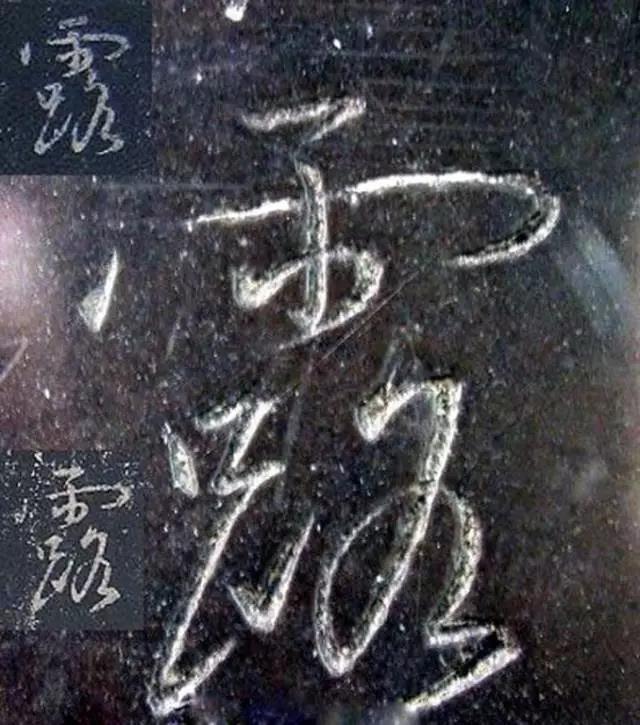 露
露
露